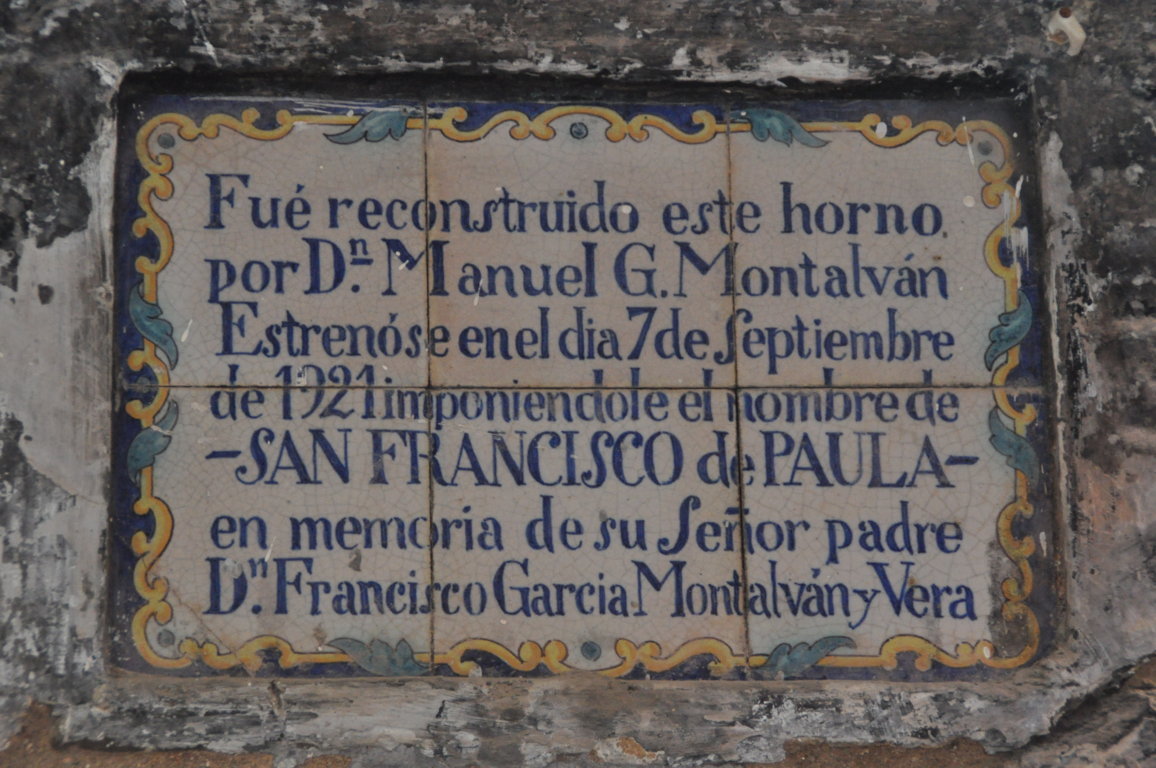 Fué reconstruido este horno
por Dⁿ. Manuel G. Montalván
Estrenóse en el dia 7 de Septiembre
de 1921 imponiendole el nombre de
-SAN FRANCISCO de PAULA-
en memoria de su Señor padre
Dⁿ. Francisco Garcia Montalván y Vera